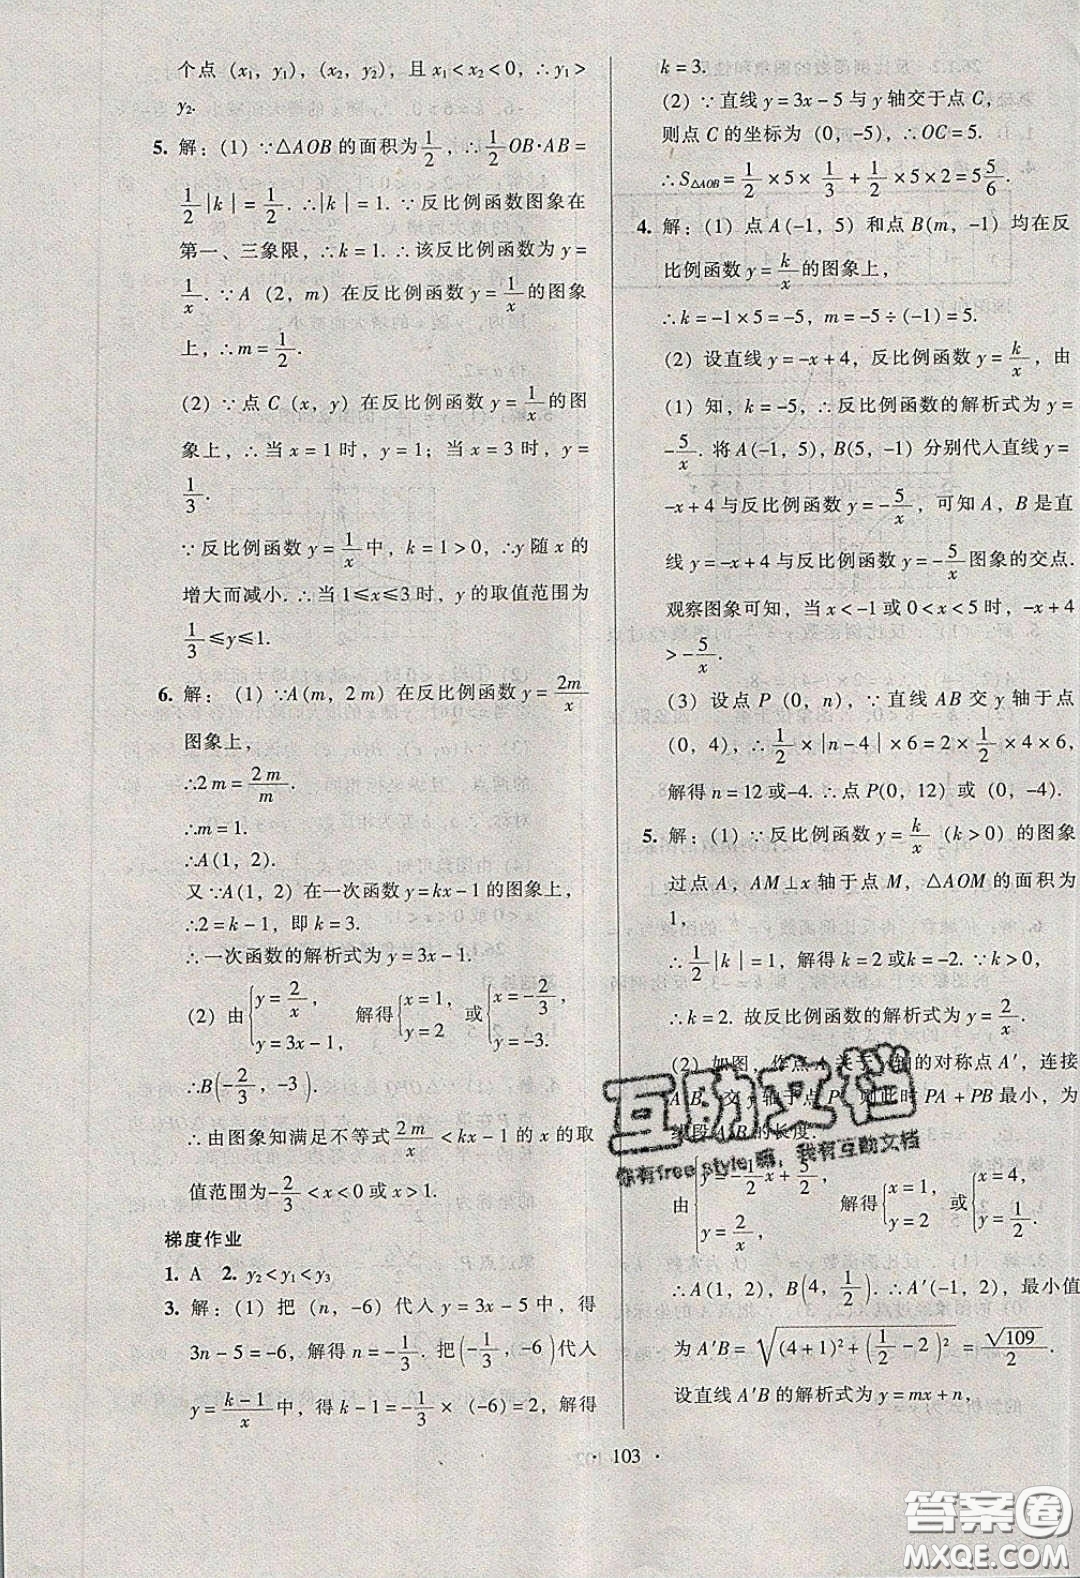 个点 (x₁, y₁), (x₂, y₂), 且 x₁<x₂<0, ∴y₁>
y₂.
5. 解: (1) ∵△AOB 的面积为 1/2, ∴ 1/2 OB·AB=
1/2 |k| = 1/2. ∴|k|=1. ∵反比例函数图象在
第一、三象限, ∴k=1. ∴该反比例函数为 y=
1/x. ∵A (2, m) 在反比例函数 y=1/x 的图象
上, ∴m=1/2.
(2) ∵点 C (x, y) 在反比例函数 y=1/x 的图
象上, ∴当 x=1 时, y=1; 当 x=3 时, y=
1/3.
∵反比例函数 y=1/x 中, k=1>0, ∴y 随 x 的
增大而减小. ∴当 1≤x≤3 时, y 的取值范围为
1/3≤y≤1.
6. 解: (1) ∵A(m, 2m) 在反比例函数 y=2m/x
图象上,
∴2m=2m/m.
∴m=1.
∴A(1, 2).
又∵A(1, 2) 在一次函数 y=kx-1 的图象上,
∴2=k-1, 即 k=3.
∴一次函数的解析式为 y=3x-1.
(2) 由 {y=2/x, y=3x-1. 解得 {x=1, y=2 或 {x=-2/3, y=-3.
∴B(-2/3, -3).
∴由图象知满足不等式 2m/x<kx-1 的 x 的取
值范围为-2/3<x<0 或 x>1.
梯度作业
1. A 2. y₂<y₁<y₃
3. 解: (1) 把 (n, -6) 代入 y=3x-5 中, 得
3n-5=-6, 解得 n=-1/3. 把(-1/3, -6)代入
y=(k-1)/x 中, 得 k-1=-1/3×(-6)=2, 解得
k=3.
(2) ∵直线 y=3x-5 与 y 轴交于点 C,
则点 C 的坐标为 (0, -5), ∴OC=5.
∴S△AOB=1/2×5×1/3+1/2×5×2=5 5/6.
4. 解: (1) 点 A(-1, 5) 和点 B(m, -1) 均在反
比例函数 y=k/x 的图象上,
∴k=-1×5=-5, m=-5÷(-1)=5.
(2) 设直线 y=-x+4, 反比例函数 y=k/x, 由
(1) 知, k=-5, ∴反比例函数的解析式为 y=
-5/x. 将 A(-1, 5), B(5, -1) 分别代人直线 y=
-x+4 与反比例函数 y=-5/x, 可知 A, B 是直
线 y=-x+4 与反比例函数 y=-5/x 图象的交点.
观察图象可知, 当 x<-1 或 0<x<5 时, -x+4
>-5/x.
(3) 设点 P (0, n), ∵直线 AB 交 y 轴于点
(0, 4), ∴1/2×|n-4|×6=2×1/2×4×6,
解得 n=12 或-4. ∴点 P(0, 12) 或 (0, -4).
5. 解: (1) ∵反比例函数 y=k/x (k>0) 的图象
过点 A, AM⊥x 轴于点 M, △AOM 的面积为
1,
∴1/2|k|=1, 解得 k=2 或 k=-2. ∵k>0,
∴k=2. 故反比例函数的解析式为 y=2/x.
(2) 如图, 作点 A 关于 y 轴的对称点 A′, 连接
A′B, 交 y 轴于点 P, 则此时 PA+PB 最小, 为
线段 A′B 的长度.
由 {y=-1/2x+5/2, y=2/x, 解得 {x=1, y=2, 或 {x=4, y=1/2.
∴A(1, 2), B(4, 1/2). ∴A′(-1, 2), 最小值
为 A′B=√((4+1)²+(1/2-2)²)=√109/2.
设直线 A′B 的解析式为 y=mx+n,
· 103 ·
互助文档
你有free style嘛, 我有互助文档
答案圈
MXQE.COM